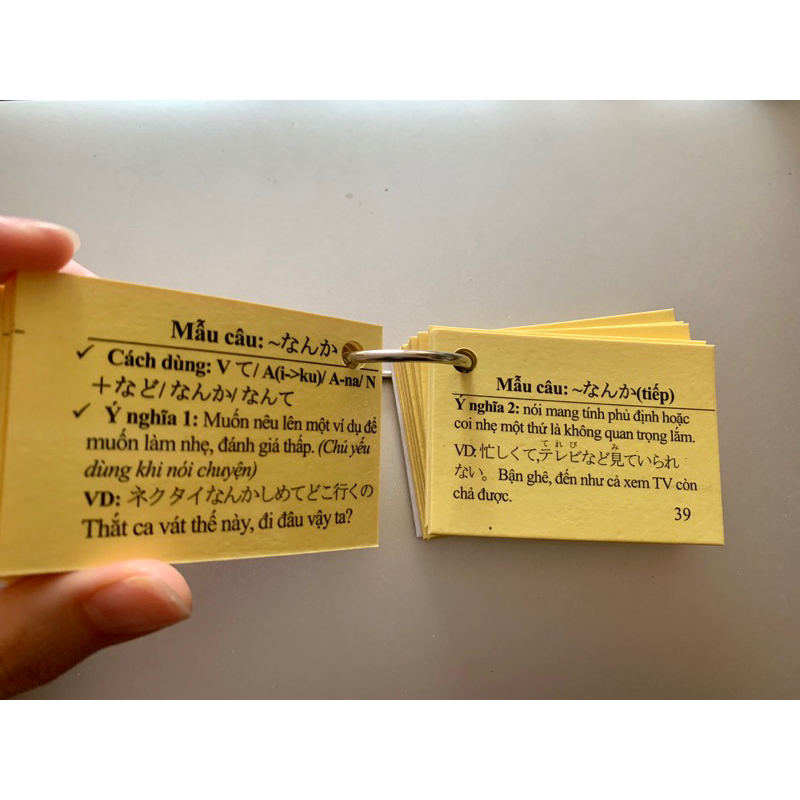 Mẫu câu: ~なんか
✓ Cách dùng: V て/ A(i->ku)/ A-na/ N
＋など/ なんか/ なんて
✓ Ý nghĩa 1: Muốn nêu lên một ví dụ để
muốn làm nhẹ, đánh giá thấp. (Chủ yếu
dùng khi nói chuyện)
VD: ネクタイなんかしめてどこ行くの
Thắt ca vát thế này, đi đâu vậy ta?
Mẫu câu: ~なんか(tiếp)
Ý nghĩa 2: nói mang tính phủ định hoặc
coi nhẹ một thứ là không quan trọng lắm.
てれび み
VD: 忙しくて,テレビなど見ていられ
ない。 Bận ghê, đến như cả xem TV còn
chả được.
39